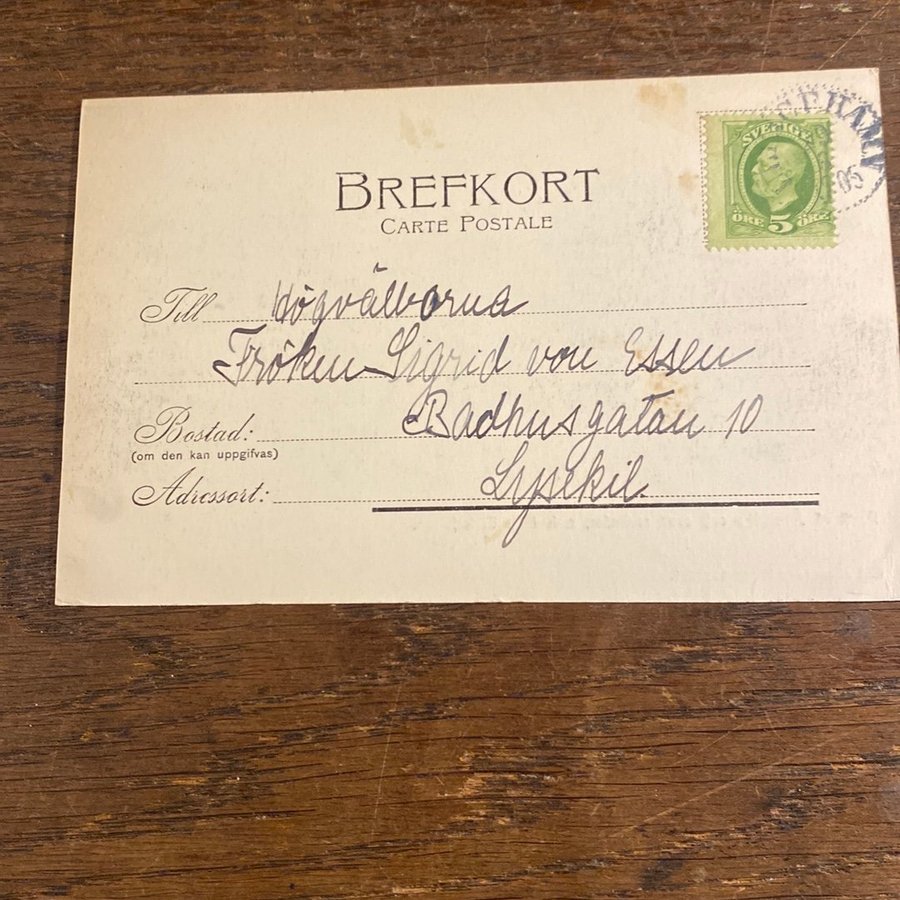 BREFKORT
CARTE POSTALE
SVERIGE
5
ÖRE ÖRE
05
Till Högvälborna
Fröken Sigrid von Essen
Bostad: Badhusgatan 10
(om den kan uppgifvas)
Adressort: Lysekil.